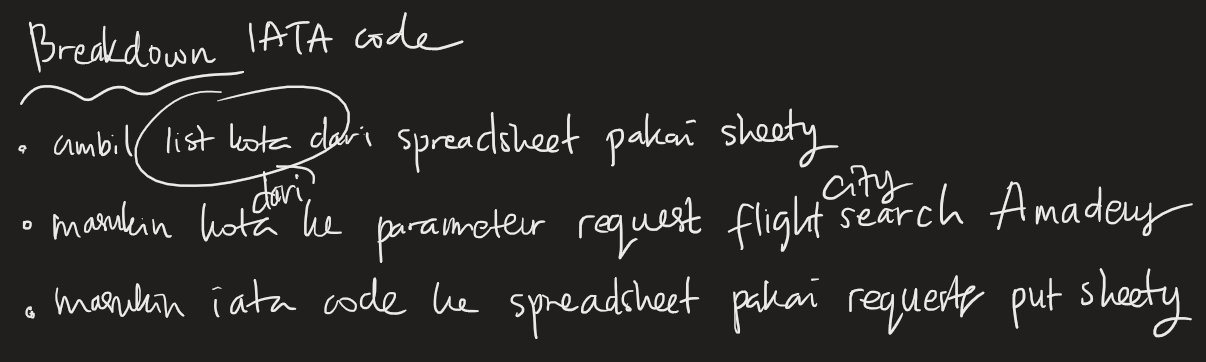 Breakdown IATA code
• ambil list kota dari spreadsheet pakai sheety
dari city
• masukin kota ke parameter request flight search Amadeus
• masukin iata code ke spreadsheet pakai requests put sheety